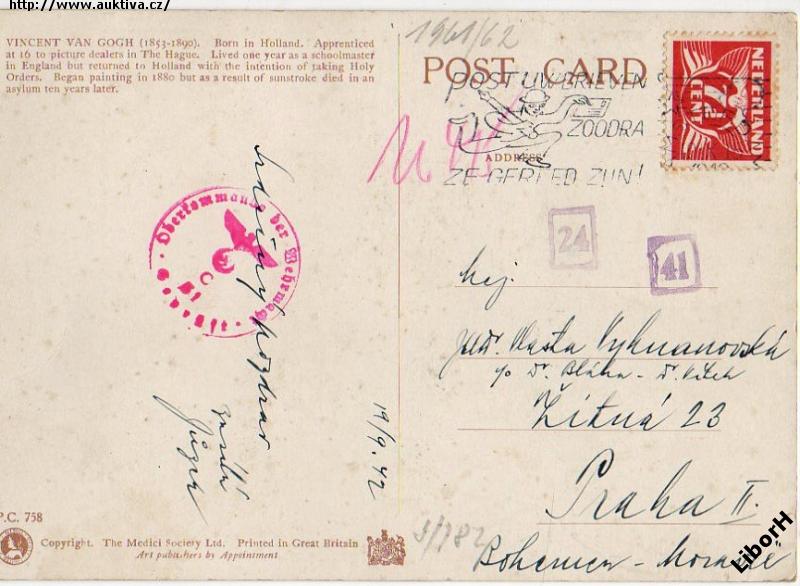 http://www.auktiva.cz/
VINCENT VAN GOGH (1853-1890). Born in Holland. Apprenticed
at 16 to picture dealers in The Hague. Lived one year as a schoolmaster
in England but returned to Holland with the intention of taking Holy
Orders. Began painting in 1880 but as a result of sunstroke died in an
asylum ten years later.
1961/62
POST CARD
ADDRESS
POST UW BRIEVEN
ZOODRA
ZE GEREED ZIJN!
NEDERLAND
7½
CENT
Oberkommando der Wehrmacht
Geprüft
24
41
Srdečný pozdrav
zasílá
19/9.42
Vlasta Vyknanovská
c/o Dr. Bláha - Dr. Vítek
Žitná 23
Praha II.
Bohemen - Moravië
P.C. 758
Copyright. The Medici Society Ltd. Printed in Great Britain
Art publishers by Appointment
LiborH